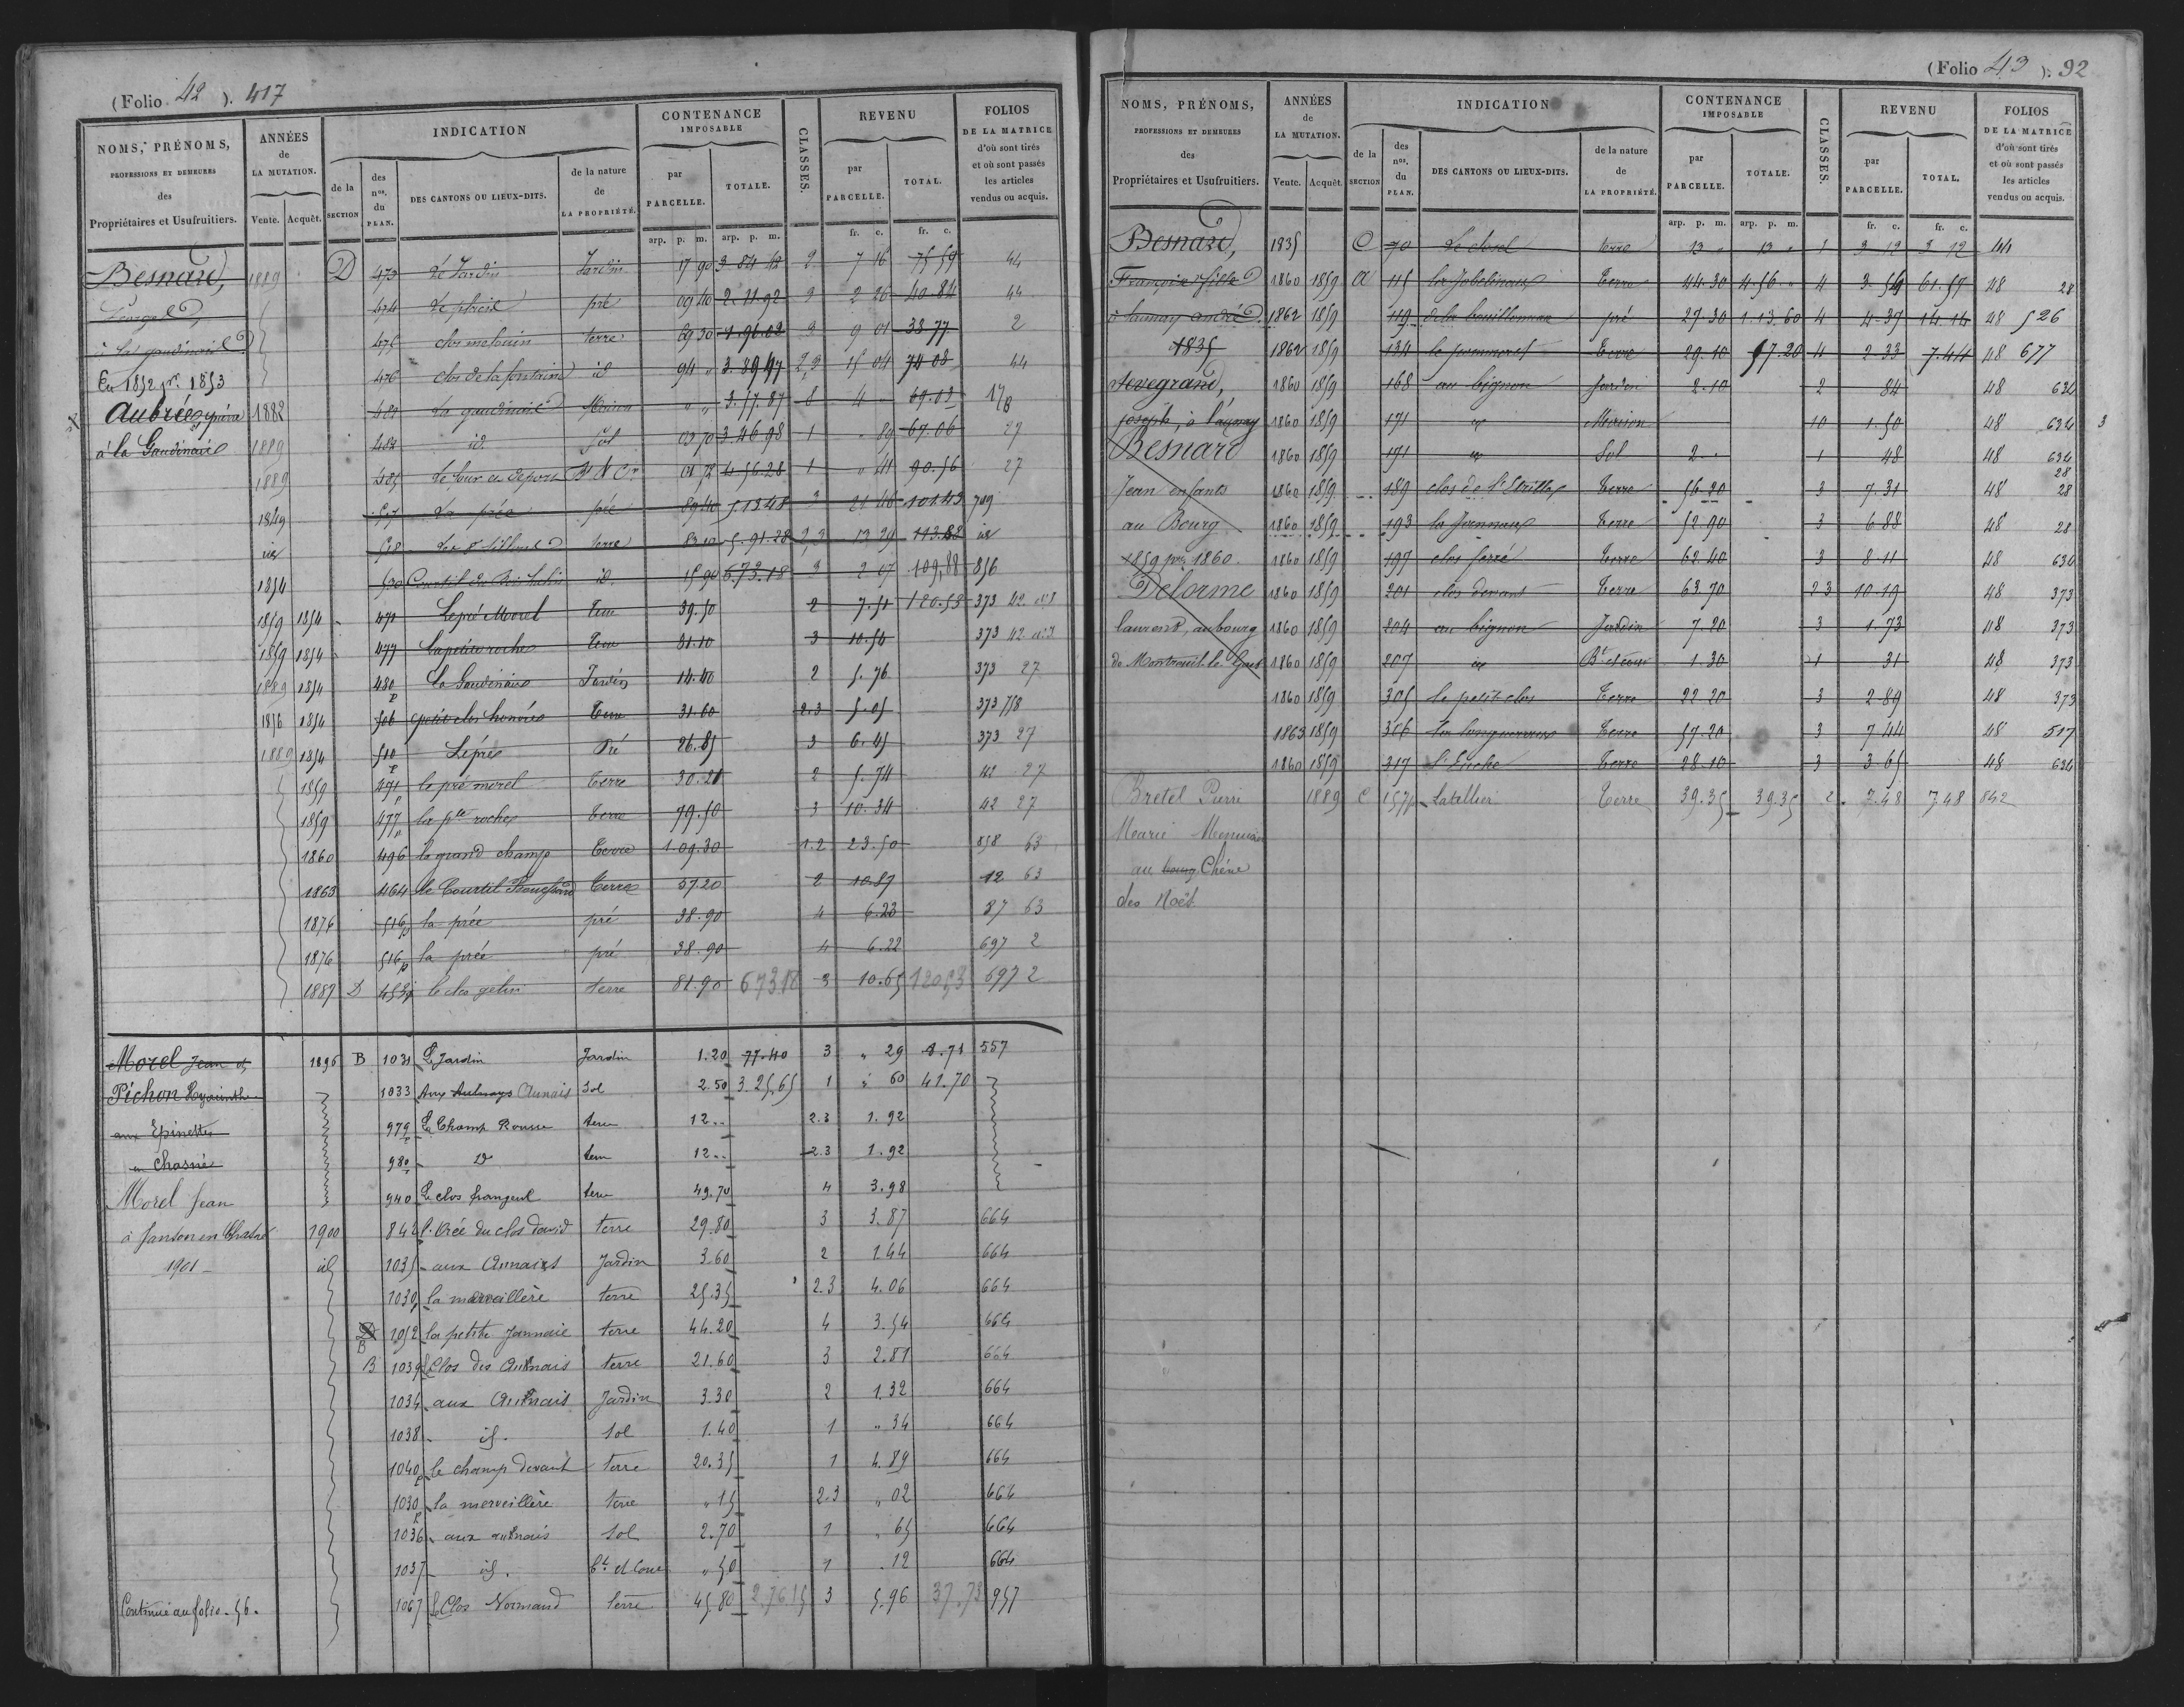 (Folio 42 ). 417
NOMS, PRÉNOMS, PROFESSIONS ET DEMEURES des Propriétaires et Usufruitiers.
ANNÉES de LA MUTATION. Vente. Acquêt.
INDICATION
de la SECTION
des nos. du PLAN.
DES CANTONS OU LIEUX-DITS.
de la nature de LA PROPRIÉTÉ.
CONTENANCE IMPOSABLE
par PARCELLE. TOTALE.
arp. p. m. arp. p. m.
CLASSES.
REVENU
par PARCELLE. TOTAL.
fr. c. fr. c.
FOLIOS DE LA MATRICE d'où sont tirés et où sont passés les articles vendus ou acquis.
Besnard, 1889 D 473 Le Jardin Jardin 17 90 3 84 42 2 7 16 75 59 44
474 pré 09 40 2.11.92 3 2 26 40.84 44
à la gaudinais 475 clos melouin terre 69 30 1.96.02 3 9 01 38 77 2
En 1852 pr. 1853 476 clos de la fontaine id 94 " 3.89.97 2,3 15 04 74 08 44
Aubrée 1882 481 La gaudinais Maison " " 3.57.87 8 4 " 69.03 178
à la Gaudinais 1889 484 id. Sol 03 70 3.46.98 1 " 89 67.06 27
1889 485 Le four et déport 01 72 4 56.28 1 " 41 90.56 27
1849 517 La prée pré 89 40 5 13 48 3 21 46 101 43 709
id 518 terre 83 10 5.91.28 2,3 13 29 113.88 id
1854 530 id. 15 90 673.18 3 2 07 109,88 856
1859 1854 471 Le pré Morel Terre 39.50 2 7.51 120.53 373 42
1859 1854 477 La petite roche Terre 81.10 3 10.54 373 42
1889 1854 480 p La Gaudinais Jardin 14.40 2 5.76 373 27
1856 1854 506 petit clos honorés Terre 31.60 2.3 5.05 373 758
1889 1854 510 p Le pré Pré 26.85 3 6.45 373 27
1859 491 p le pré morel Terre 30.21 2 5.74 42 27
1859 477 p la pte roche Terre 79.50 3 10.34 42 27
1860 496 le grand champ Terre 1.09.30 1.2 23.50 858 63
1863 464 le Courtil Terre 57 20 2 10.87 12 63
1876 516 p la prée pré 38.90 4 6.23 87 63
1876 516 p la prée pré 38.90 4 6.22 697 2
1887 D 453 le clos gelin terre 81.90 673.18 3 10.65 120,53 697 2
Morel Jean et 1896 B 1031 Le Jardin Jardin 1.20 77.40 3 " 29 8.71 557
Pichon Hyacinthe 1033 Aux Aulnays Aunais Sol 2.50 3.25,65 1 " 60 41.70
aux Epinettes 979 p Le Champ Rousse terre 12.. 2.3 1.92
en Chasné 980 id terre 12.. 2.3 1.92
Morel Jean 940 Le clos frangeul terre 49.70 4 3.98
à Janson en Chasné 1900 842 l'orée du clos david terre 29.80 3 3.87 664
1901 id 1035 aux Aunais Jardin 3.60 2 1.44 664
1030 p la merveillère terre 25.35 2.3 4.06 664
B 1052 la petite Jannaie terre 44.20 4 3.54 664
B 1039 Le Clos des Aulnais terre 21.60 3 2.81 664
1034 aux Aulnais Jardin 3.30 2 1.32 664
1038 id. Sol 1.40 1 " 34 664
1040 p le champ devant terre 20.35 1 4.89 664
1030 p la merveillère terre " 15 2.3 " 02 664
1036 aux aulnais Sol 2.70 1 " 65 664
1037 id. bt. et Cour " 50 1 . 12 664
Continué au folio 56. 1067 Le Clos Normand terre 45.80 2.76.15 3 5.96 37.73 957
(Folio 43 ). 92
NOMS, PRÉNOMS, PROFESSIONS ET DEMEURES des Propriétaires et Usufruitiers.
ANNÉES de LA MUTATION. Vente. Acquêt.
INDICATION
de la SECTION
des nos. du PLAN.
DES CANTONS OU LIEUX-DITS.
de la nature de LA PROPRIÉTÉ.
CONTENANCE IMPOSABLE
par PARCELLE. TOTALE.
arp. p. m. arp. p. m.
CLASSES.
REVENU
par PARCELLE. TOTAL.
fr. c. fr. c.
FOLIOS DE LA MATRICE d'où sont tirés et où sont passés les articles vendus ou acquis.
Besnard, 1835 C 70 Le closel terre 13 " 13 " 1 3 12 3 12 44
Françoise fille 1860 1859 A 115 Terre 44.30 4.56." 4 3.54 61.57 48 28
à launay andré 1862 1859 119 de la bouillonnaie pré 27.30 1.13.60 4 4.37 14.14 48 526
1835 1862 1859 134 Terre 29.10 57.20 4 2.33 7.44 48 677
Sevegrand, 1860 1859 168 au bignon Jardin 2.10 2 84 48 634
joseph, à launay 1860 1859 171 id Maison 10 1.50 48 634 3
Besnard 1860 1859 171 id Sol 2 . 1 48 48 634
Jean enfants 1860 1859 189 Terre 56.20 3 7.31 48 28 28
au Bourg 1860 1859 193 la Jannaux Terre 52.90 3 6 88 48 28
1859 pr. 1860. 1860 1859 197 clos ferré Terre 62.40 3 8.11 48 630
Delorme 1860 1859 201 clos devant Terre 63.70 2 3 10.19 48 373
laurend, au bourg 1860 1859 204 au bignon Jardin 7.20 3 1.73 48 373
de Montreuil le Gast 1860 1859 207 id Bt et cour 1.30 1 31 48 373
1860 1859 305 le petit clos Terre 22 20 3 2 89 48 373
1863 1859 306 Terre 57.20 3 7 44 48 517
1860 1859 317 l'Enche Terre 28.10 3 3 65 48 634
Bretel Pierre 1889 C 157 p Labellier Terre 39.35 39.35 2. 7.48 7.48 842
Marie
au bourg Chêne
des Noës